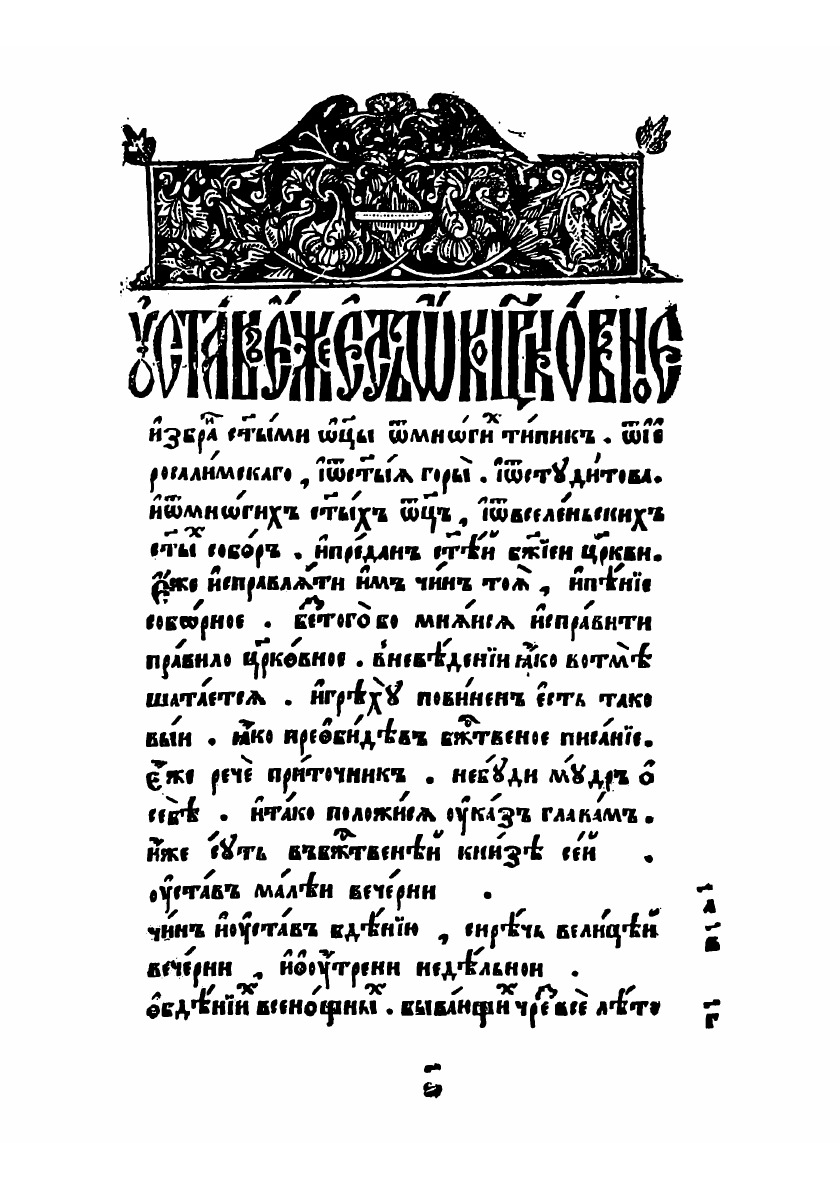 ᲂу҆ста́въ є҆́же є҆́сть ѡ҆́ко цр҃ко́вное
и҆збра́н ст҃ы́ми ѻ҆ц҃ы ѿмнѡги́х ти́пикъ . ѿіе
росали́мскаго , і҆ѿст҃ы́ѧ горы̀ . і҆ѿстꙋди́това .
и҆ѿмнѡ́гихъ ст҃ы́хъ ѻ҆ц҃ъ , і҆ѿвселе́ньскихъ
ст҃ы́х собо́ръ . и҆пре́данъ ст҃ѣ́й бж҃їеи цр҃кви .
є҆́же и҆справлѧ́ти и҆́мъ чи́нъ тоѧ̀ , и҆пѣ́нїе
собѡ́рное . бестогѡ̀ бо мнѧ́исѧ и҆спра́вити
пра́вило цр҃ко́вное . в̾невѣ́денїи ꙗ҆́ко вотмѣ̀
шата́етсѧ . и҆грѣхꙋ̀ пови́ненъ є҆́сть тако
вы́и . ꙗ҆́ко преѻ҆би́дѣвъ бж҃твеное писа́нїе .
є҆́же речѐ при́точникъ . небꙋ́ди мꙋ́дръ ѻ҆
себѣ̀ . и҆та́ко положи́сѧ ᲂу҆ка́зъ глава́мъ .
и҆́же сꙋ́ть въбж҃твенѣ́й кни́зѣ се́й .
ᲂу҆ста́въ ма́лѣи вече́рни . а҃
чи́нъ и҆ᲂу҆ста́въ бдѣ́нїю , сирѣ́чь вели́цѣй в҃
вече́рни , и҆ѻ҆ᲂу҆́трени недѣ́льнои .
ѻ҆бдѣ́нїих всено́щных . быва́ющих чрез всѐ лѣ́то г҃
є҃